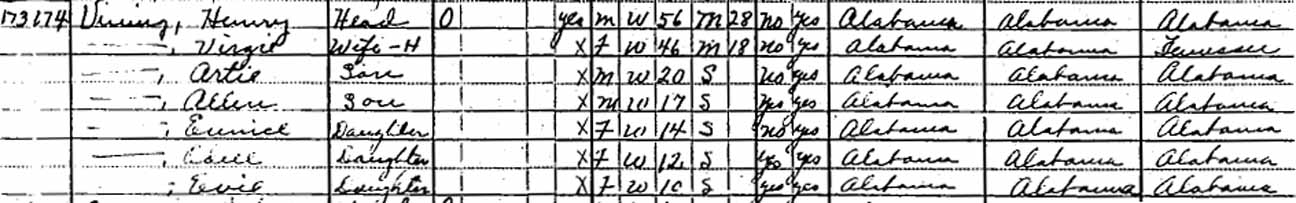 173 174 Vining, Henry Head O yes M W 56 M 28 no yes Alabama Alabama Alabama
—, Virgie Wife-H X F W 46 M 18 no yes Alabama Alabama Tennessee
—, Artie Son X M W 20 S no yes Alabama Alabama Alabama
—, Allen Son X M W 17 S yes yes Alabama Alabama Alabama
—, Eunice Daughter X F W 14 S no yes Alabama Alabama Alabama
—, Daughter X F W 12 S yes yes Alabama Alabama Alabama
—, Evie Daughter X F W 10 S yes yes Alabama Alabama Alabama